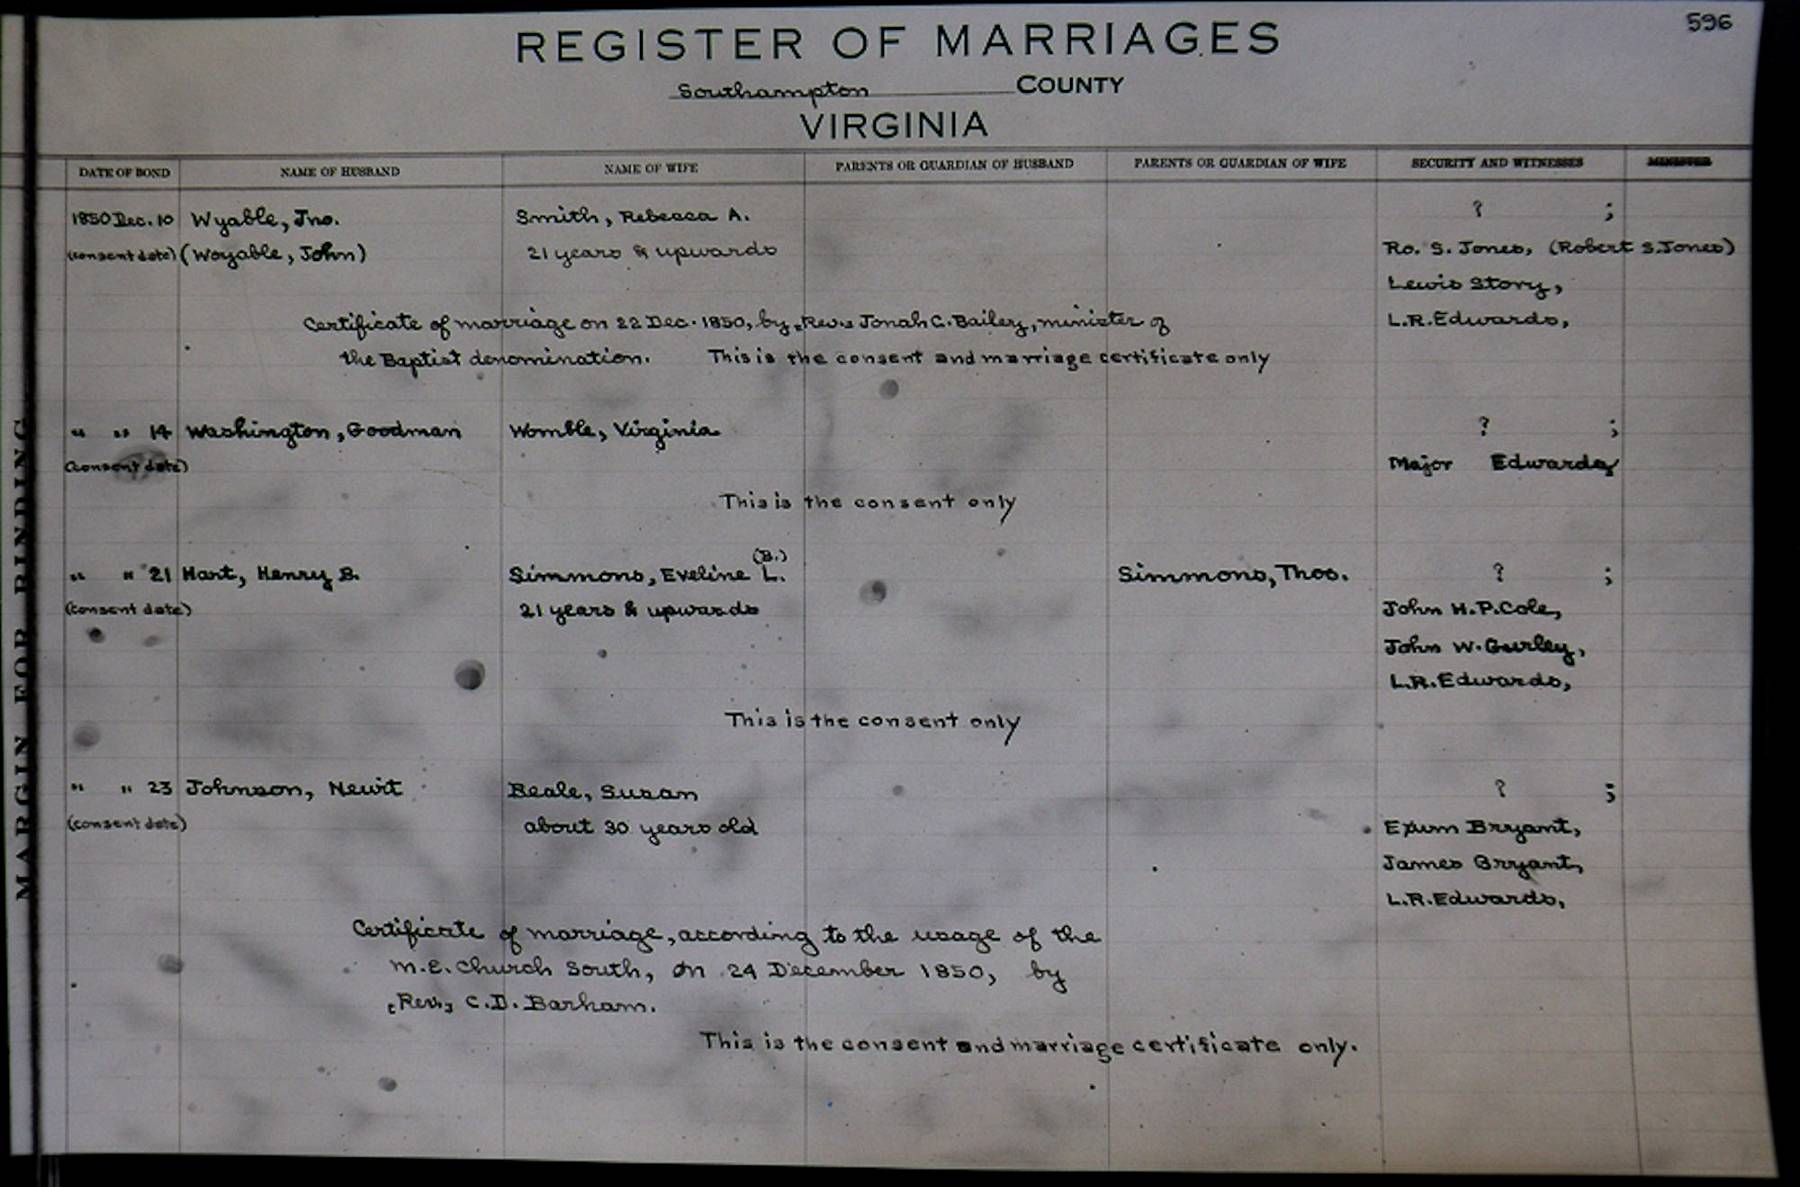 596
REGISTER OF MARRIAGES
Southampton COUNTY
VIRGINIA
DATE OF BOND NAME OF HUSBAND NAME OF WIFE PARENTS OR GUARDIAN OF HUSBAND PARENTS OR GUARDIAN OF WIFE SECURITY AND WITNESSES MINISTER
1850 Dec. 10 Wyable, Jno. Smith, Rebecca A. ? ;
(consent date) (Woyable, John) 21 years & upwards Ro. S. Jones, (Robert S. Jones)
Lewis Story,
Certificate of marriage on 22 Dec. 1850, by [Rev.] Jonah C. Bailey, minister of L.R. Edwards,
the Baptist denomination. This is the consent and marriage certificate only
" " 14 Washington, Goodman Womble, Virginia ? ;
(consent date) Major Edwards,
This is the consent only
(B.)
" " 21 Hart, Henry B. Simmons, Eveline L. Simmons, Thos. ? ;
(consent date) 21 years & upwards John H. P. Cole,
John W. Gurley,
L.R. Edwards,
This is the consent only
" " 23 Johnson, Newit Beale, Susan ? ;
(consent date) about 30 years old Exum Bryant,
James Bryant,
L.R. Edwards,
Certificate of marriage, according to the usage of the
M.E. Church South, on 24 December 1850, by
[Rev.] C.D. Barham.
This is the consent and marriage certificate only.
MARGIN FOR BINDING